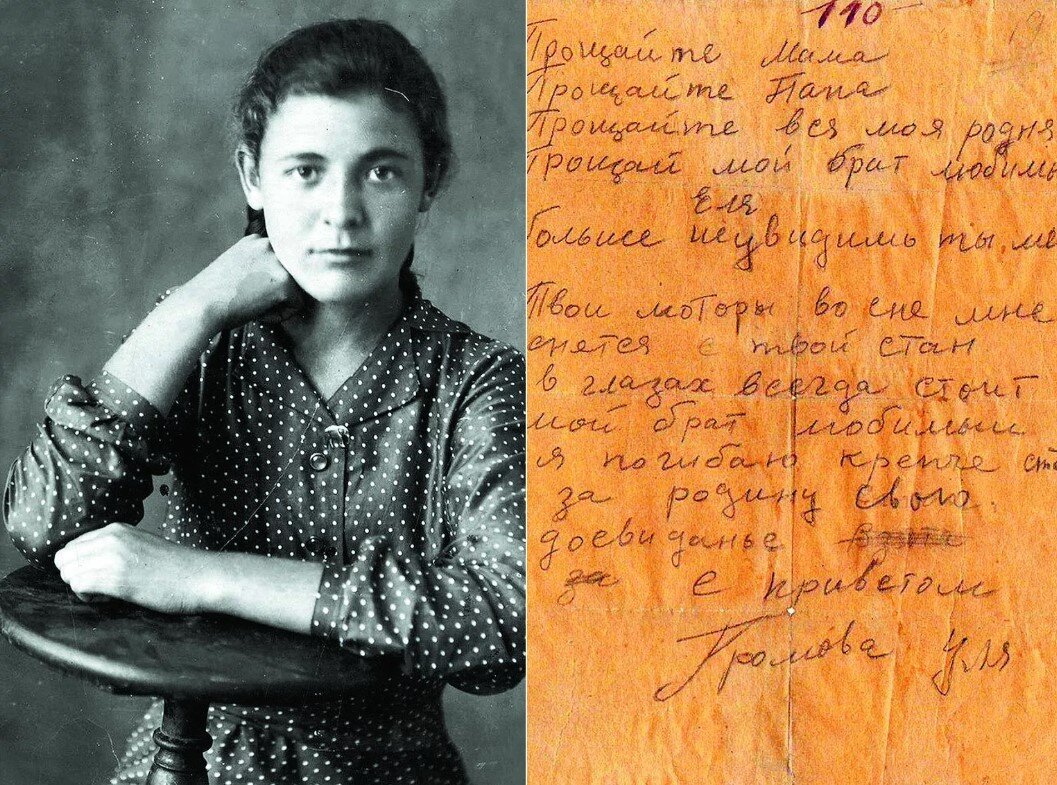 110
19
Прощайте Мама
Прощайте Папа
Прощайте вся моя родня
Прощай мой брат любимы
Еля
больше неувидишь ты ме
Твои моторы во сне мне
снется с твой стан
в глазах всегда стоит
мой брат любимый
я погибаю крепче ст
за родину свою.
досвиданье
за
с приветом
Громова Уля